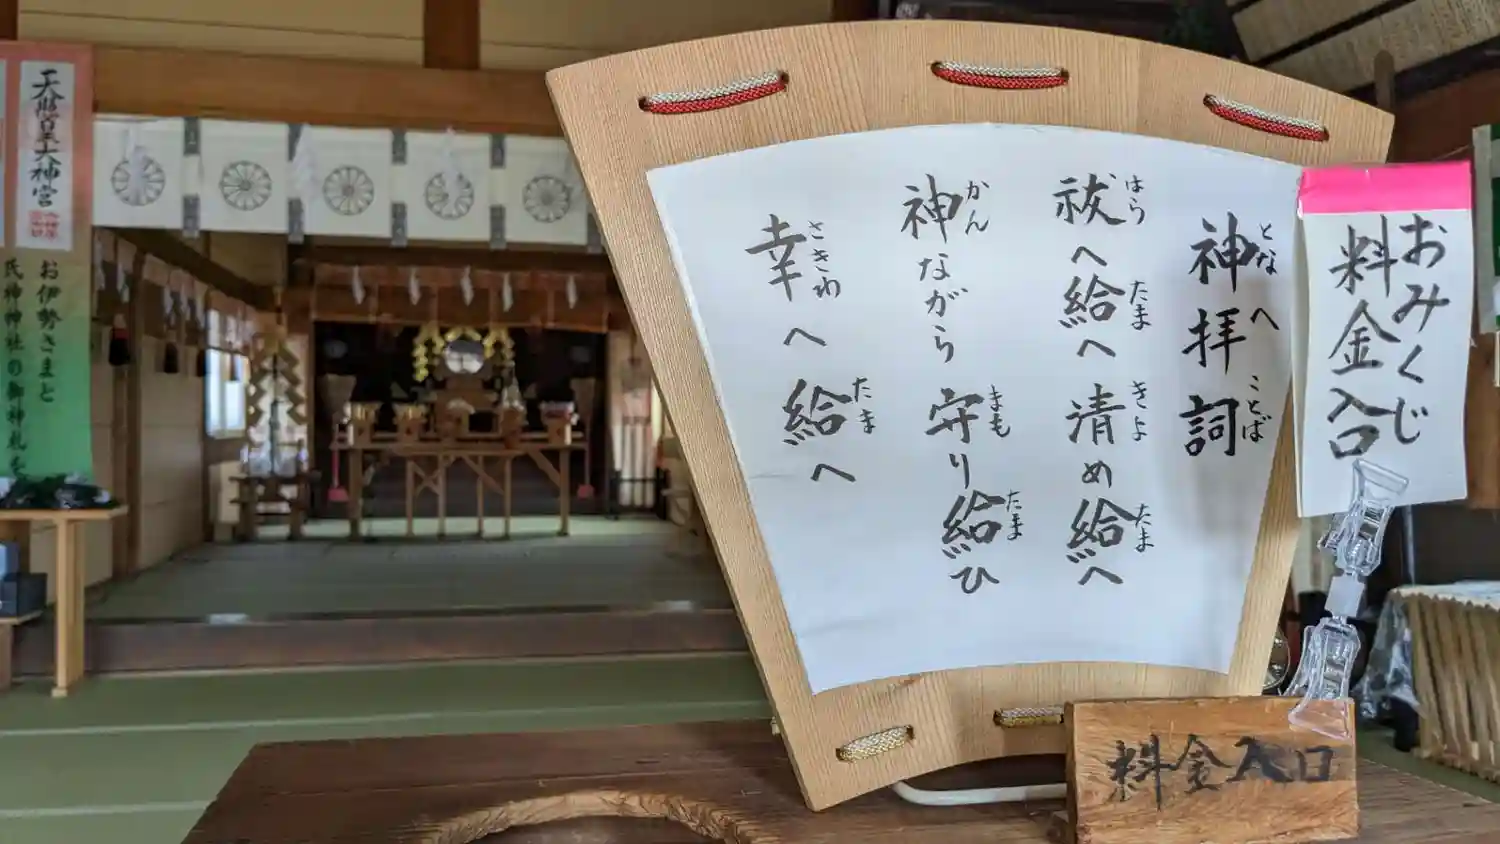 おみくじ
料金入口
となへ ことば
神拝詞
はら たま きよ たま
祓へ給へ 清め給へ
かん まも たま
神ながら 守り給ひ
さきわ たま
幸へ給へ
料金入口
天照皇大神宮
お伊勢さまと
氏神神社の御神札を